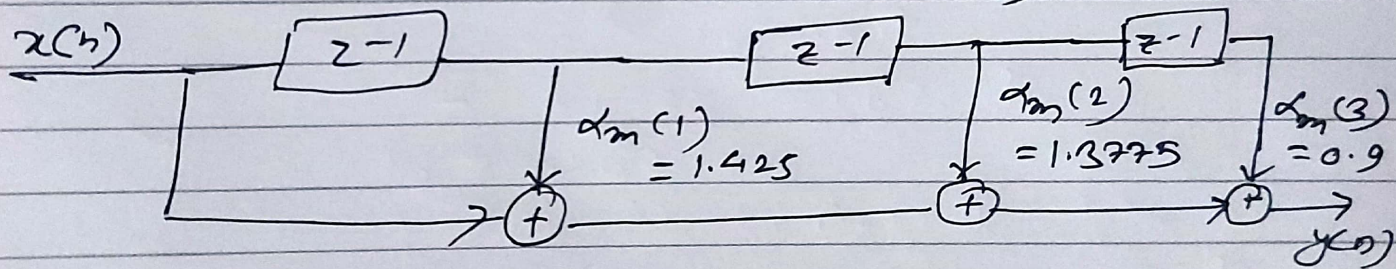 x(n)
z-1
z-1
z-1
αm(1)
= 1.425
αm(2)
= 1.3775
αm(3)
= 0.9
+
+
+
y(n)